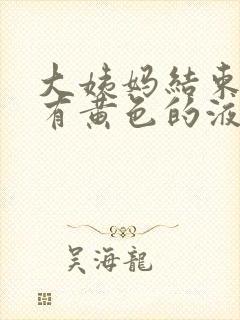 大姨妈結束
有黄色的液
吴海龍